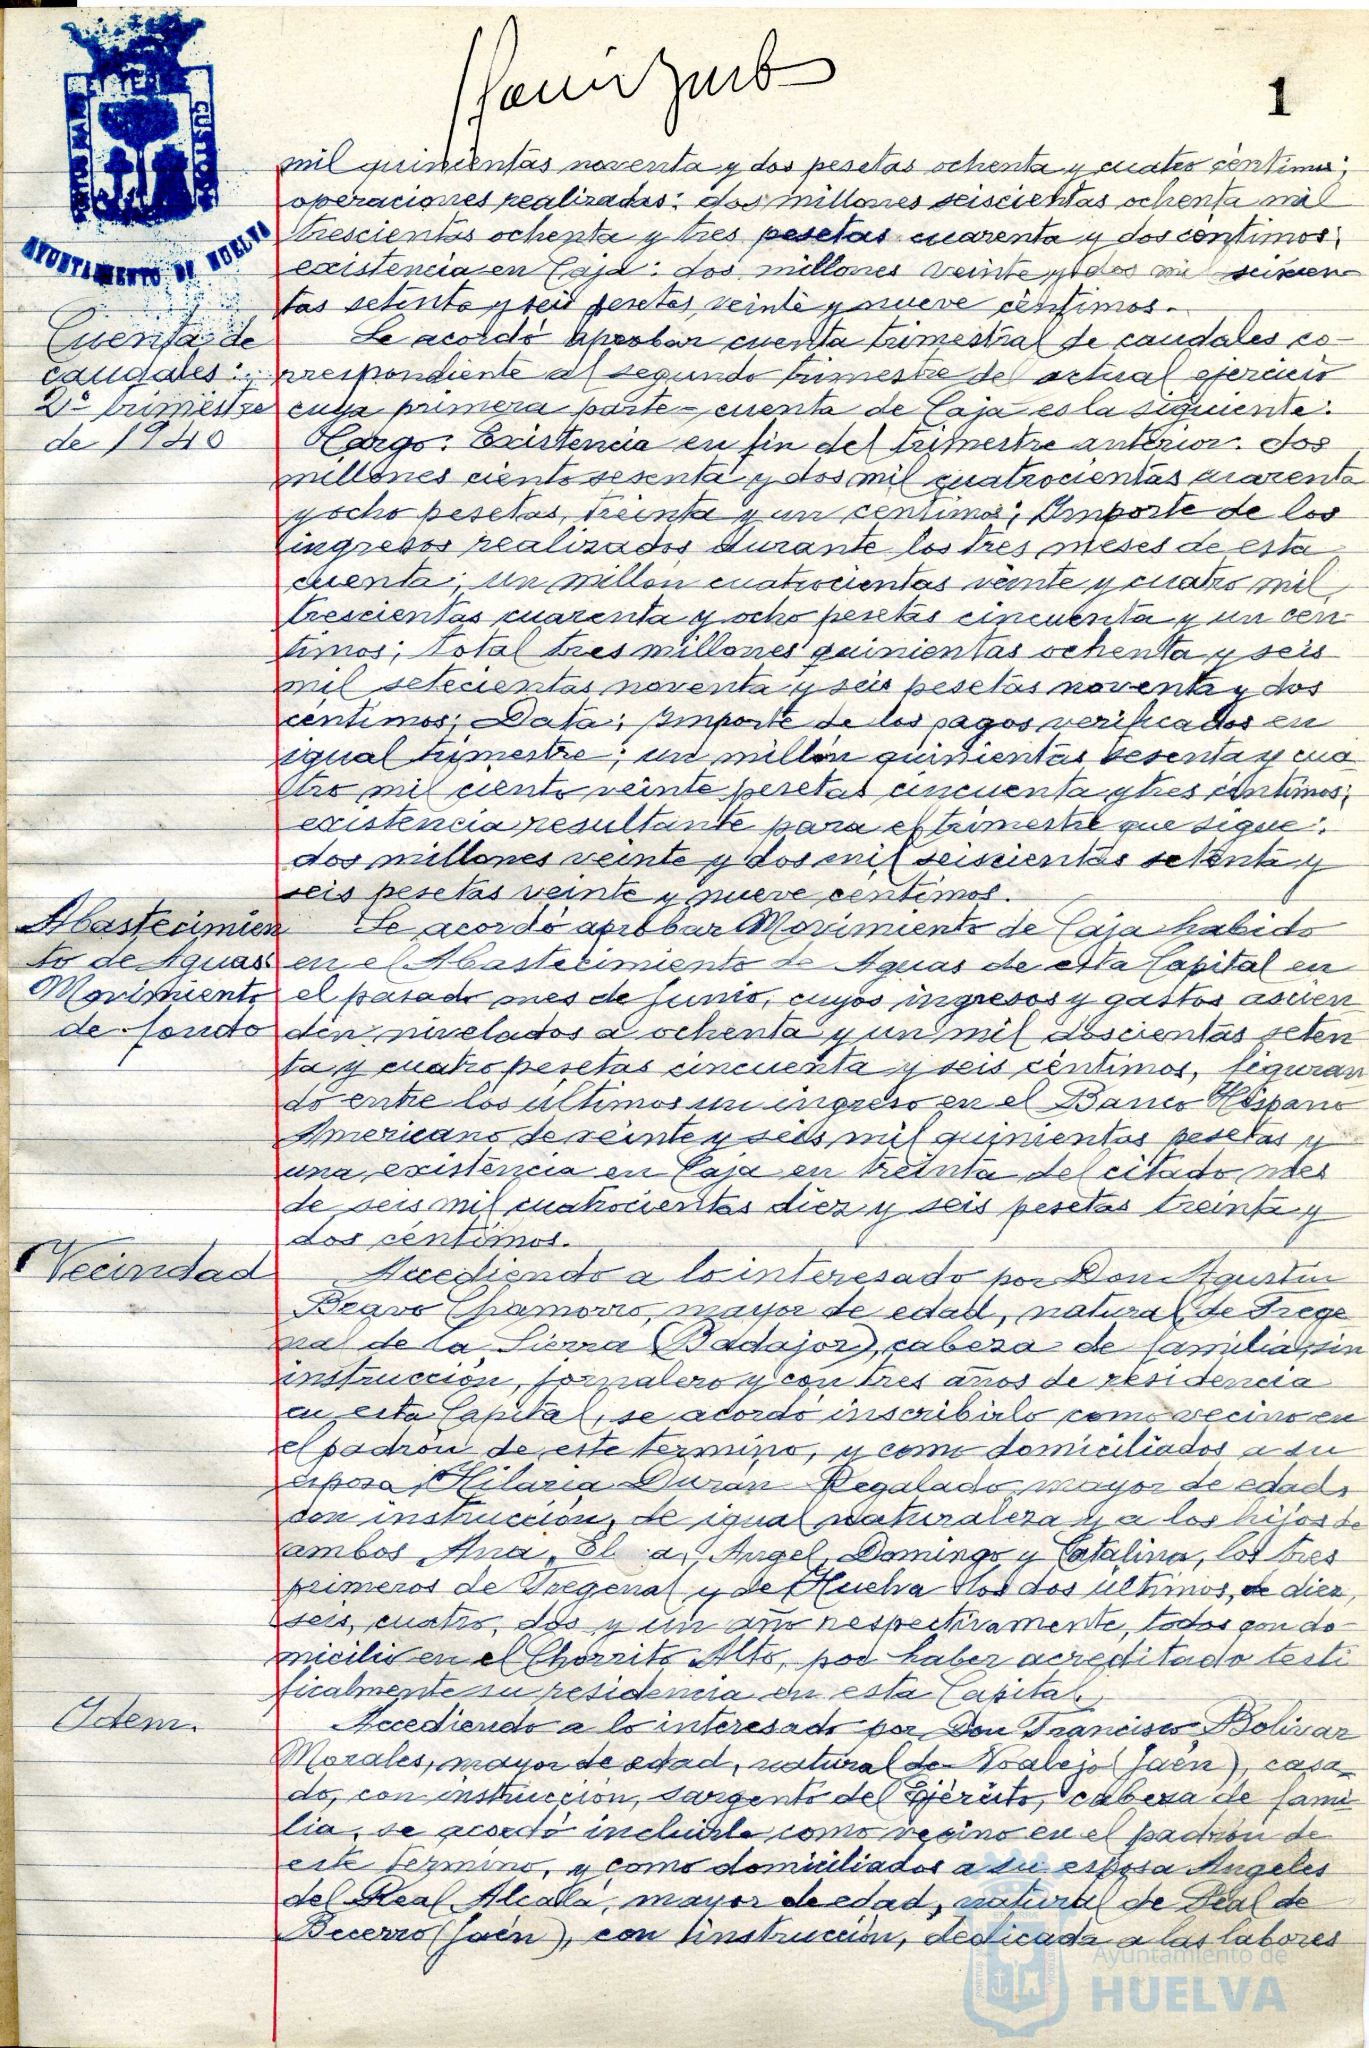 1
PORTUS MARIS ET TERRE CUSTODIA
AYUNTAMIENTO DE HUELVA
mil quinientas noventa y dos pesetas ochenta y cuatro céntimos;
operaciones realizadas: dos millones seiscientas ochenta mil
trescientas ochenta y tres pesetas cuarenta y dos centimos;
existencia en Caja: dos millones veinte y dos mil seiscien-
tas setenta y seis pesetas, veinte y nueve céntimos.
Cuenta de
caudales:
2º trimestre
de 1940
Se acordó aprobar cuenta trimestral de caudales co-
rrespondiente al segundo trimestre del actual ejercicio
cuya primera parte- cuenta de Caja es la siguiente:
Cargo: Existencia en fin del trimestre anterior: dos
millones ciento sesenta y dos mil cuatrocientas cuarenta
y ocho pesetas, treinta y un centimos; Importe de los
ingresos realizados durante los tres meses de esta
cuenta; un millón cuatrocientas veinte y cuatro mil,
trescientas cuarenta y ocho pesetas cincuenta y un cen-
timos; total tres millones quinientas ochenta y seis
mil setecientas noventa y seis pesetas noventa y dos
céntimos; Data; Importe de los pagos verificados en
igual trimestre; un millón quinientas sesenta y cua-
tro mil ciento veinte pesetas cincuenta y tres céntimos;
existencia resultante para el trimestre que sigue:
dos millones veinte y dos mil seiscientas setenta y
seis pesetas veinte y nueve centimos.
Abastecimien
to de Aguas
Movimiento
de fondo
Se acordó aprobar Movimiento de Caja habido
en el Abastecimiento de Aguas de esta Capital en
el pasado mes de Junio, cuyos ingresos y gastos ascien
den nivelados a ochenta y un mil doscientas seten
ta y cuatro pesetas cincuenta y seis céntimos, figuran
do entre los últimos un ingreso en el Banco Hispano
Americano de veinte y seis mil quinientas pesetas y
una existencia en Caja en treinta del citado mes
de seis mil cuatrocientas diez y seis pesetas treinta y
dos céntimos.
Vecindad
Accediendo a lo interesado por Don Agustín
Bravo Chamorro, mayor de edad, natural de Frege
nal de la Sierra (Badajoz), cabeza de familia, sin
instrucción, jornalero y con tres años de residencia
en esta Capital, se acordó inscribirlo como vecino en
el padrón de este termino, y como domiciliados a su
esposa Hilaria Durán Regalado mayor de edad,
con instrucción, de igual naturaleza y a los hijos de
ambos Ana, Angel, Domingo y Catalina, los tres
primeros de Fregenal y de Huelva los dos últimos, de diez,
seis, cuatro, dos y un año respectivamente, todos con do
micilio en el Chorrito Alto, por haber acreditado testi
ficalmente su residencia en esta Capital.
Idem.
Accediendo a lo interesado por Don Francisco Bolivar
Morales, mayor de edad, natural de Noalejo (Jaén), casa-
do, con instrucción, sargento del Ejército, cabeza de fami-
lia, se acordó incluirle como vecino en el padrón de
este termino, y como domiciliados a su esposa Angeles
del Real Alcalá, mayor de edad, natural de Peal de
Becerro (Jaén), con instrucción, dedicada a las labores
Ayuntamiento de
HUELVA